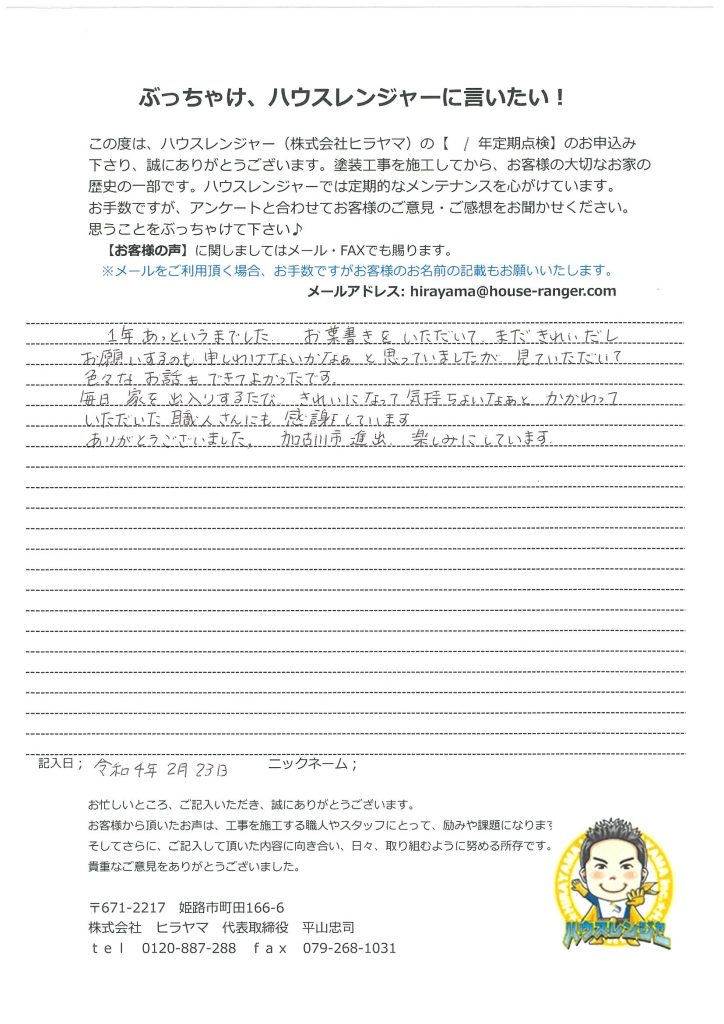 ぶっちゃけ、ハウスレンジャーに言いたい！
この度は、ハウスレンジャー（株式会社ヒラヤマ）の【 1 年定期点検】のお申込み
下さり、誠にありがとうございます。塗装工事を施工してから、お客様の大切なお家の
歴史の一部です。ハウスレンジャーでは定期的なメンテナンスを心がけています。
お手数ですが、アンケートと合わせてお客様のご意見・ご感想をお聞かせください。
思うことをぶっちゃけて下さい♪
【お客様の声】に関しましてはメール・FAXでも賜ります。
※メールをご利用頂く場合、お手数ですがお客様のお名前の記載もお願いいたします。
メールアドレス: hirayama@house-ranger.com
1年あっというまでした。 お葉書きをいただいて、まだきれいだし
お願いするのも申しわけないかなぁと思っていましたが、見ていただいて
色々なお話もできてよかったです。
毎日家を出入りするたび きれいになって気持ちよいなぁと かかわって
いただいた職人さんにも感謝しています。
ありがとうございました。 加古川市進出 楽しみにしています。
記入日； 令和4年2月23日 ニックネーム；
お忙しいところ、ご記入いただき、誠にありがとうございます。
お客様から頂いたお声は、工事を施工する職人やスタッフにとって、励みや課題になります
そしてさらに、ご記入して頂いた内容に向き合い、日々、取り組むように努める所存です。
貴重なご意見をありがとうございました。
〒671-2217 姫路市町田166-6
株式会社 ヒラヤマ 代表取締役 平山忠司
ｔｅｌ 0120-887-288 ｆａｘ 079-268-1031
ハウスレンジャー